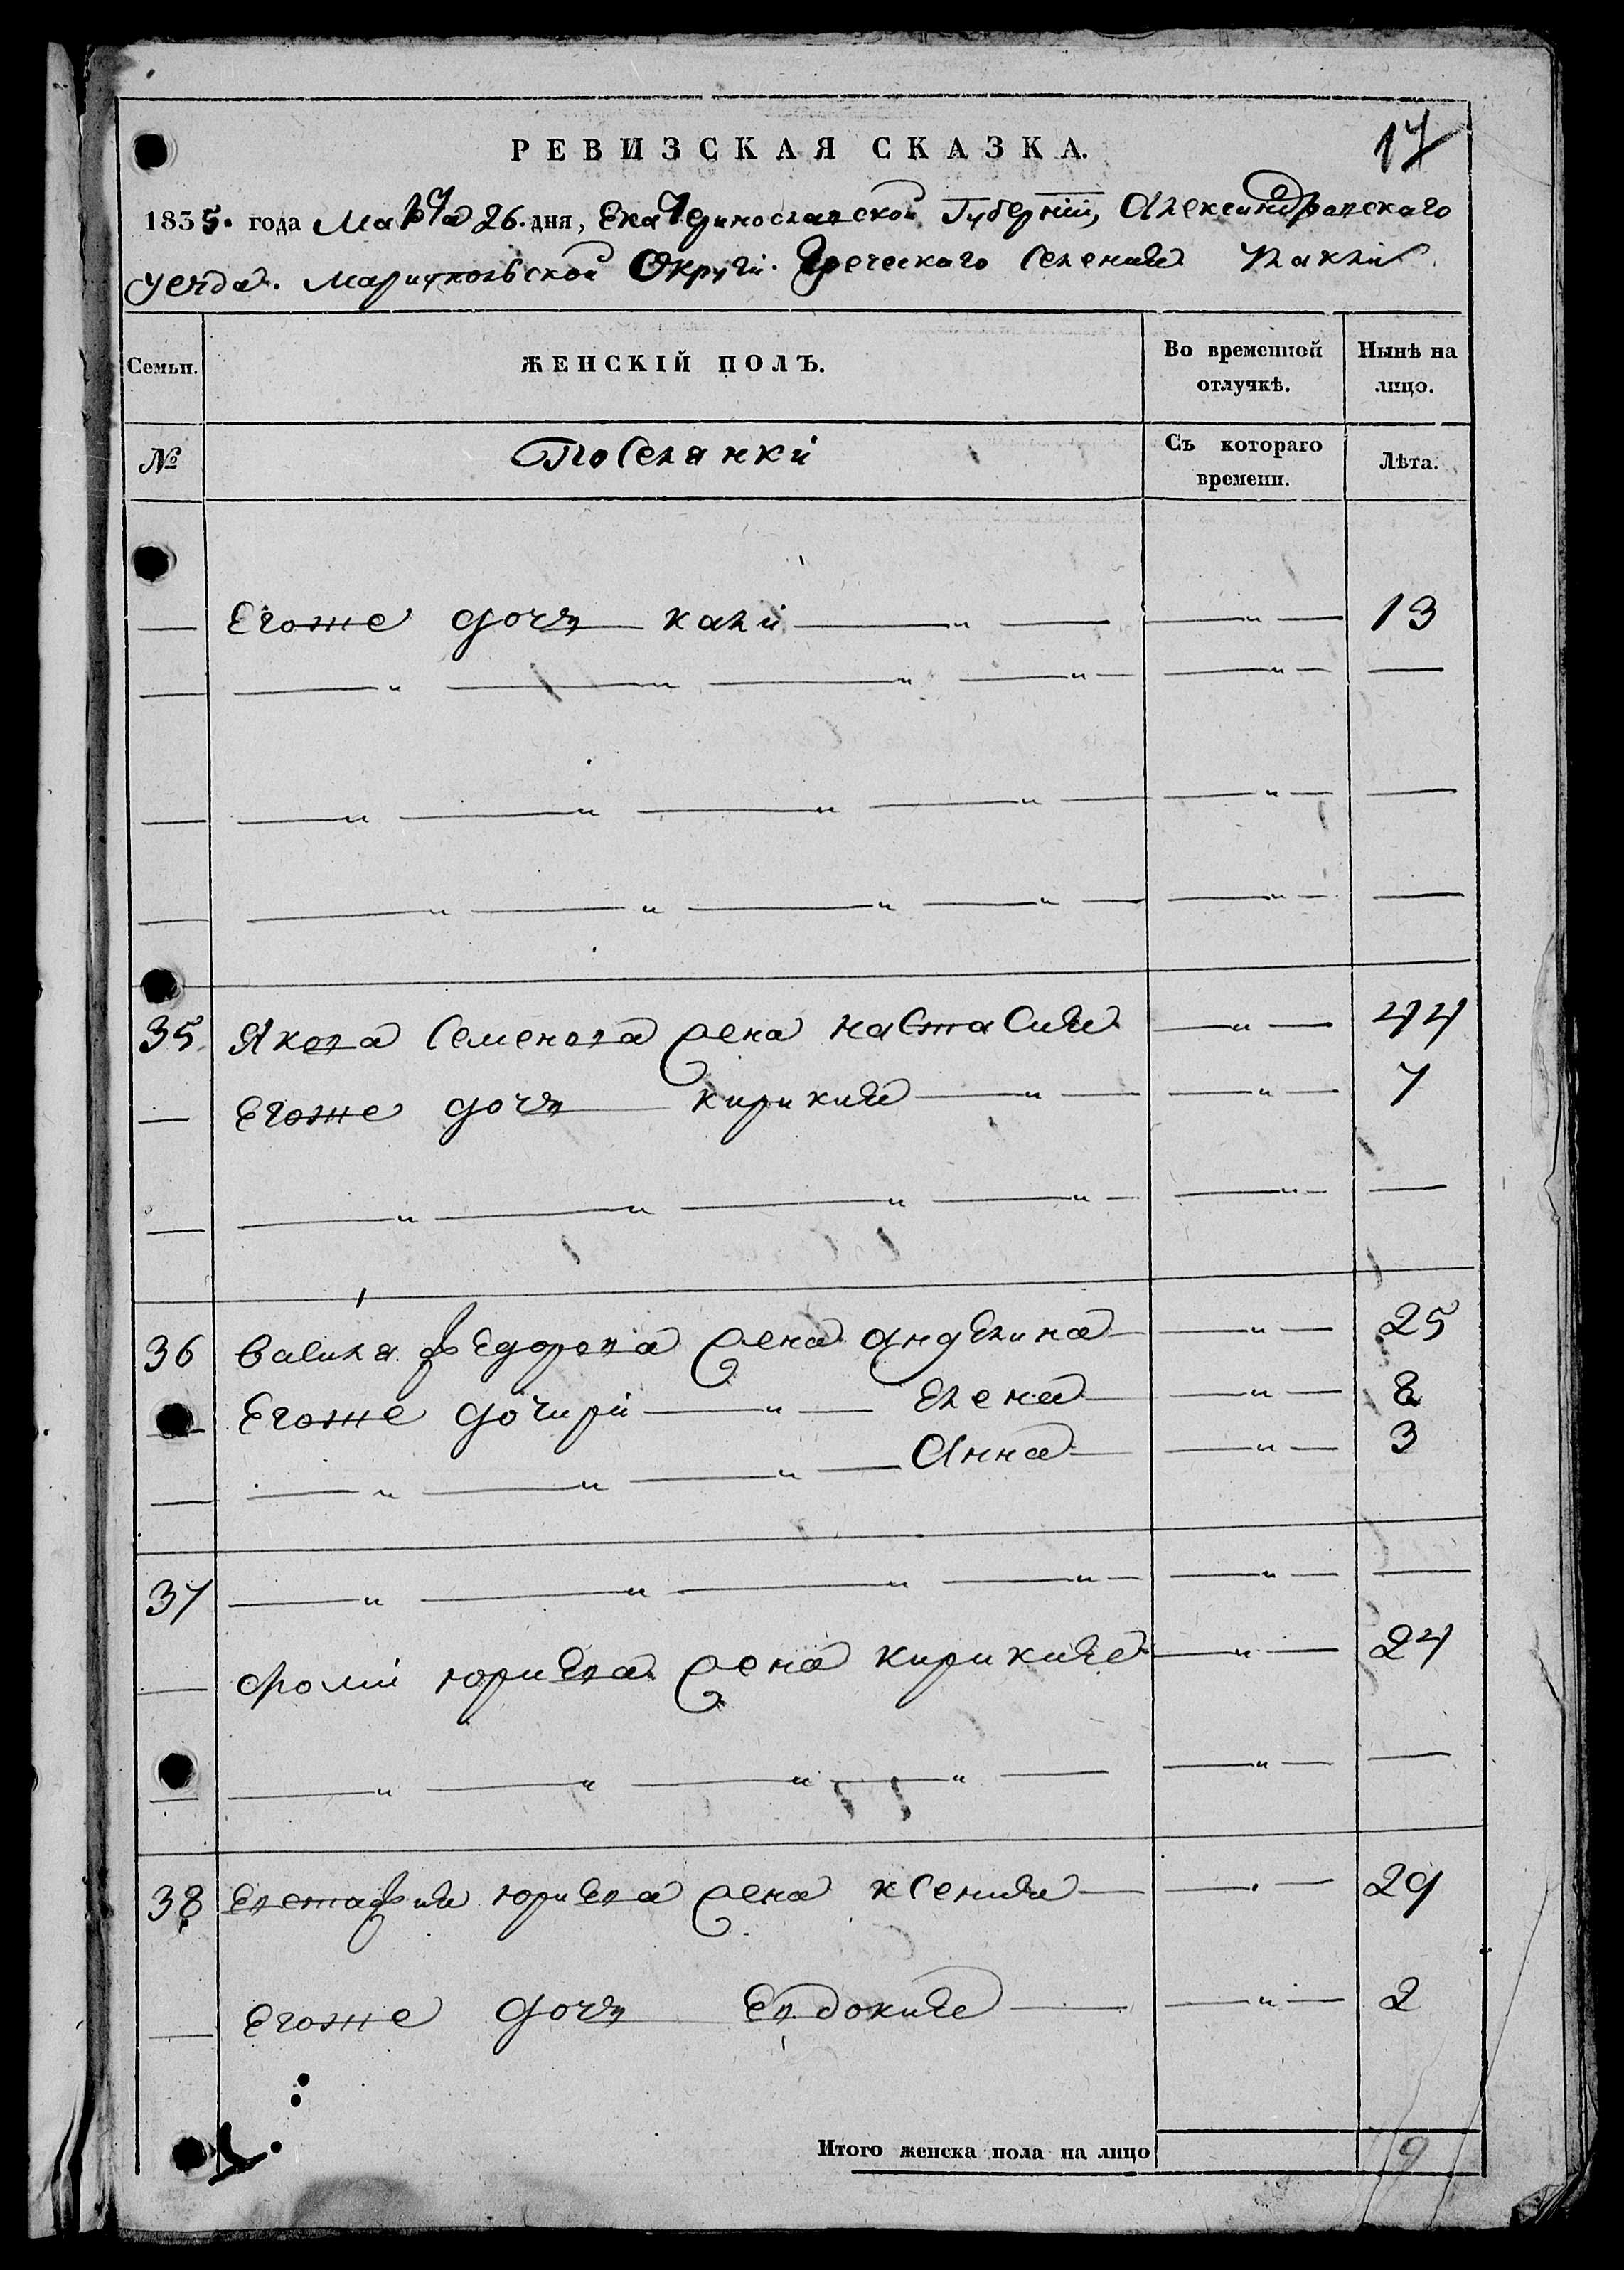 17
РЕВИЗСКАЯ СКАЗКА.
1835. года Марта 26. дня, Екатеринославской Губерніи, Александровскаго
уезда. Мариупольской Округи. Греческаго Селения
Семьи. ЖЕНСКІЙ ПОЛЪ. Во временной отлучкѣ. Нынѣ на лицо.
№ Поселянки Съ котораго времени. Лѣта.
— Егоже дочь Калі — „ — — „ — 13
35 Якова Семенова жена настасия — „ — 44
— Егоже дочь кирикия — „ — — „ — 7
36 Василя федорова жена анделина — „ — 25
— Егоже дочирі — „ — Елена — „ — 8
— „ — „ — „ — Анна — „ — 3
37 — „ — „ — „ — „ — — „ — —
— Фомы юриева жена кирикия — „ — 24
38 Евстафия юриева жена ксения — „ — 29
— Егоже дочь Евдокия — — „ — 2
Итого женска пола на лицо 9